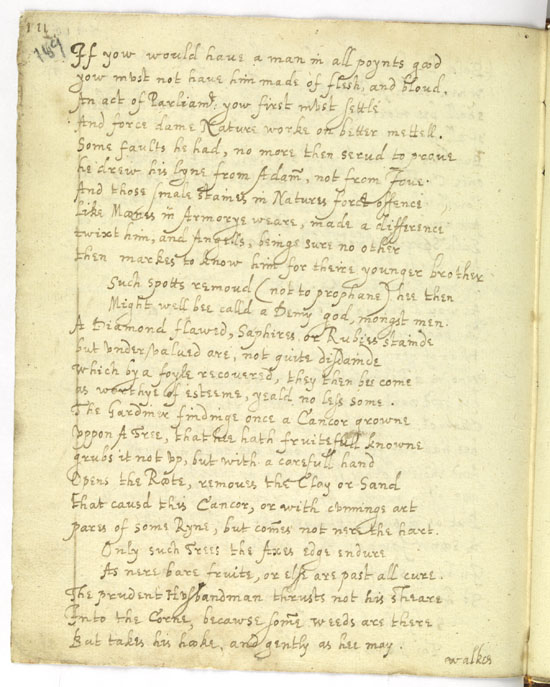 111
189
If yow would have a man in all poynts good
yow must not have him made of flesh, and bloud.
An act of Parliamt: yow first must settle
And force dame Nature worke on better mettell.
Some faults he had, no more then serud to prove
he drew his lyne from Adam, not from Jove.
And those smale staines in Natures forct offence
Like Moones in Armorye weare, made a difference
twixt him, and Angells, beinge sure no other
then markes to know him for theire younger brother
Such spotts remoud (not to prophane) hee then
Might well bee calld a Demy god, mongst men.
A Diamond flawed, Saphires, or Rubies stainde
but undervalued are, not quite disdainde
which by a foyle recovered, they then become
as worthye of esteeme, yeald no less some.
The Gardnier findinge once a Cancor growne
uppon A Tree, that hee hath fruitefull knowne
grubs it not up, but with a carefull hand
Opens the Roote, removes the Clay or Sand
that causd this Cancor, or with cunninge art
pares of some Ryne, but comes not nere the hart.
Only such Trees the Axes edge endure
As nere bare fruite, or else are past all cure.
The prudent Husbandman thrusts not his Sheare
Into the Corne, because some weeds are there
But takes his hooke, and gently as hee may.
walkes